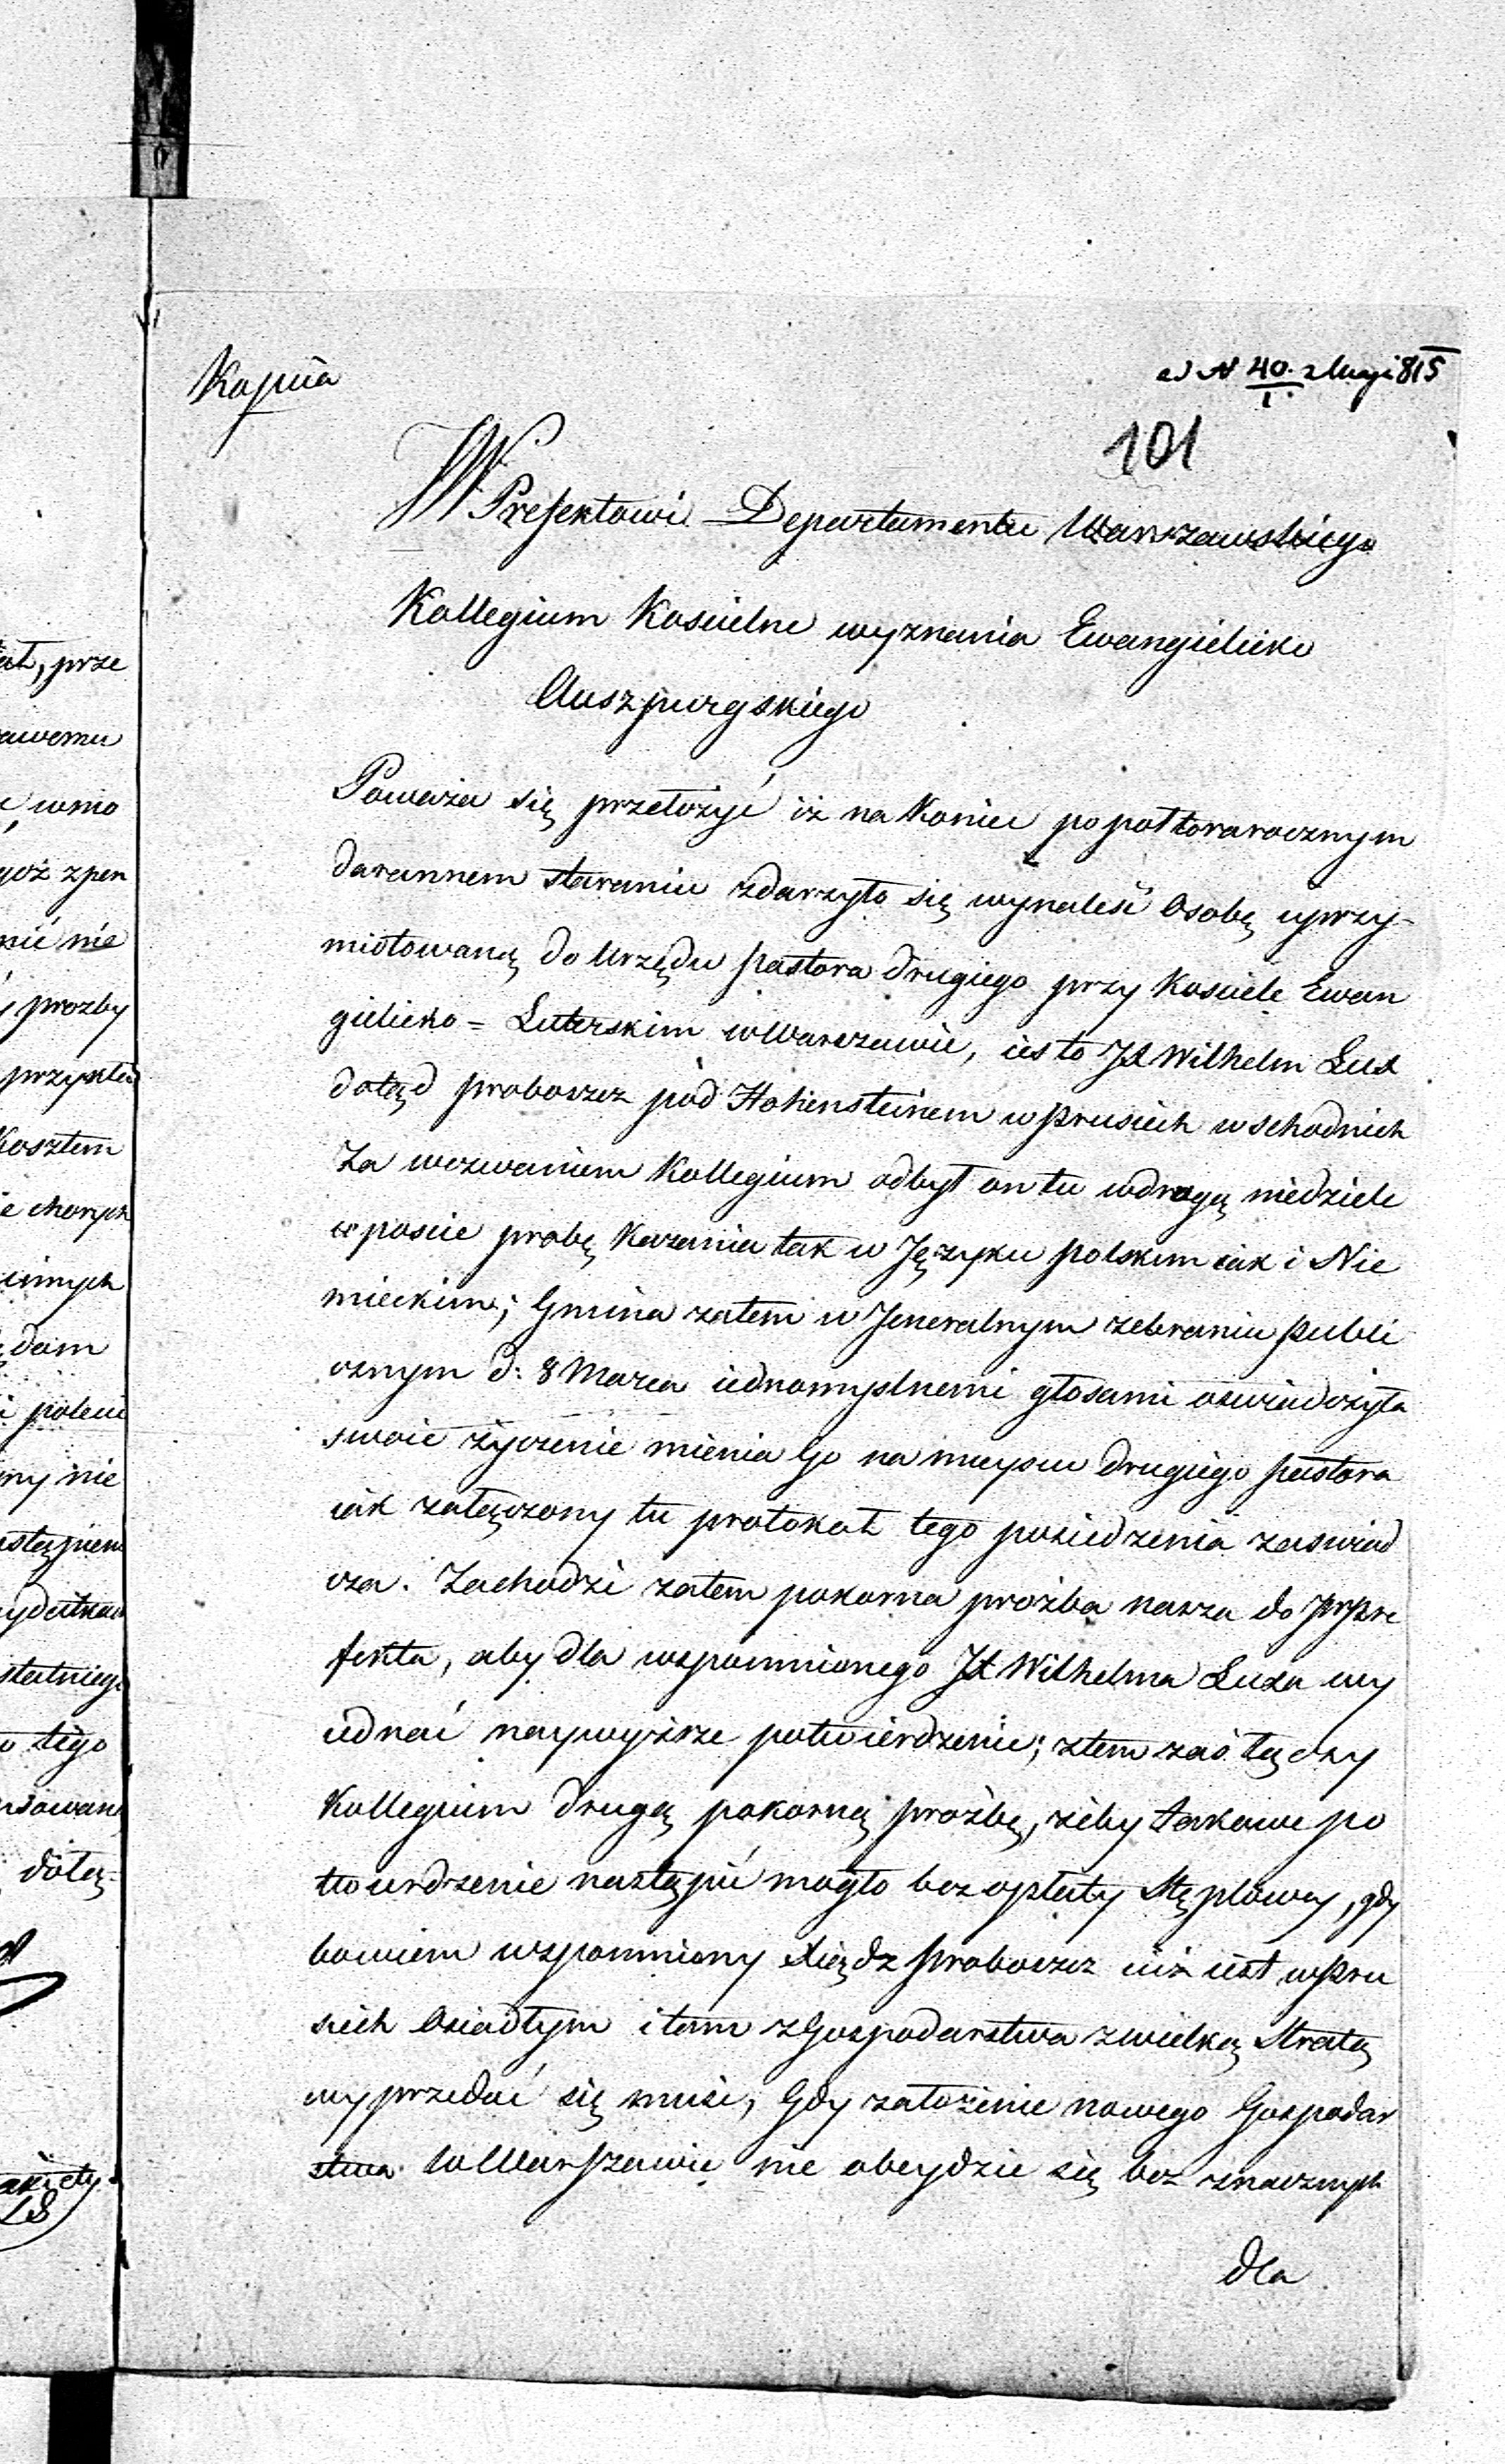 Kopiia
ad N 40. z Maja 815
I.
101
W Prefektowi Departamentu Warszawskiego
Kollegium Koscielne wyznania Ewangielicko
Auszpurgskiego
Poważa się przełożyć iż na koniec po połtorarocznym
darannem staraniu zdarzyło się wynaleść Osobę uprzy-
miotowaną do Urzędu pastora drugiego przy Kosciele Ewan
gielicko = Luterskim w Warszawie, iest to JX Wilhelm Lux
dotąd proboszcz pod Hohensteinem w Prusiech wschodnich
Za wezwaniem Kollegium odbył on tu w drugą niedziele
w poscie probę Kazania tak w Języku polskim iak i Nie
mieckim; Gmina zatem w Jeneralnym zebraniu publi
cznym d: 8 Marca iednomyslnemi głosami oswiadczyła
swoie życzenie mienia Go na mieyscu drugiego pastora
iak załączony tu protokał tego posiedzenia zaswiad
cza. Zachodzi zatem pokorna prożba nasza do JWPre
fekta, aby dla wspomnionego JX Wilhelma Luxa wy
iednać naywyższe potwierdzenie; z tem zaś łączy
Kollegium drugą pokorną prożbę, żeby takowe po
twierdzenie nastąpić mogło bez opłaty Stęplowey, gdy
bowiem wspomniony Xiądz proboszcz iuż iest w Pru
siech Osiadłym i tam z Gospodarstwa z wielką Stratą
wyprzedać się musi, Gdy założenie nowego Gospodar
stwa w Warszawie nie obeydzie się bez znacznych
dla
ał, prze
awemu
wmo
goż zpen
nie
prozby
przykład
Kosztem
chorych
innych
dam
i poleci
ny nie
tego
dotą-